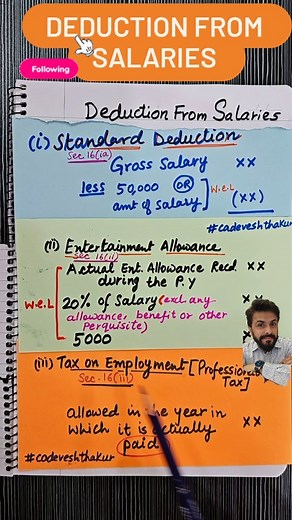 DEDUCTION FROM
SALARIES
Following
Deduction From Salaries
(i) Standard Deduction
Sec 16(ia)
Gross Salary xx
less 50,000 OR
amt of Salary
W.e.L
(xx)
#cadeveshthakur
(ii) Entertainment Allowance
Sec 16(ii)
Actual Ent. Allowance Recd. xx
during the P.Y
W.e.L
20% of Salary (excl any
allowance, benefit or other
Perquisite)
5000
(iii) Tax on Employment [Professional
Tax]
Sec-16(iii)
allowed in the year in
which it is actually xx
paid
#cadeveshthakur